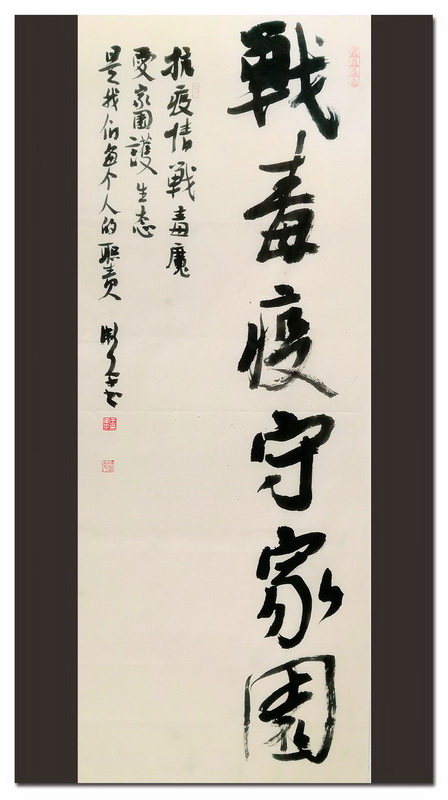 戰毒疫守家園
抗疫情戰毒魔
愛家園護生态
是我们每个人的职责